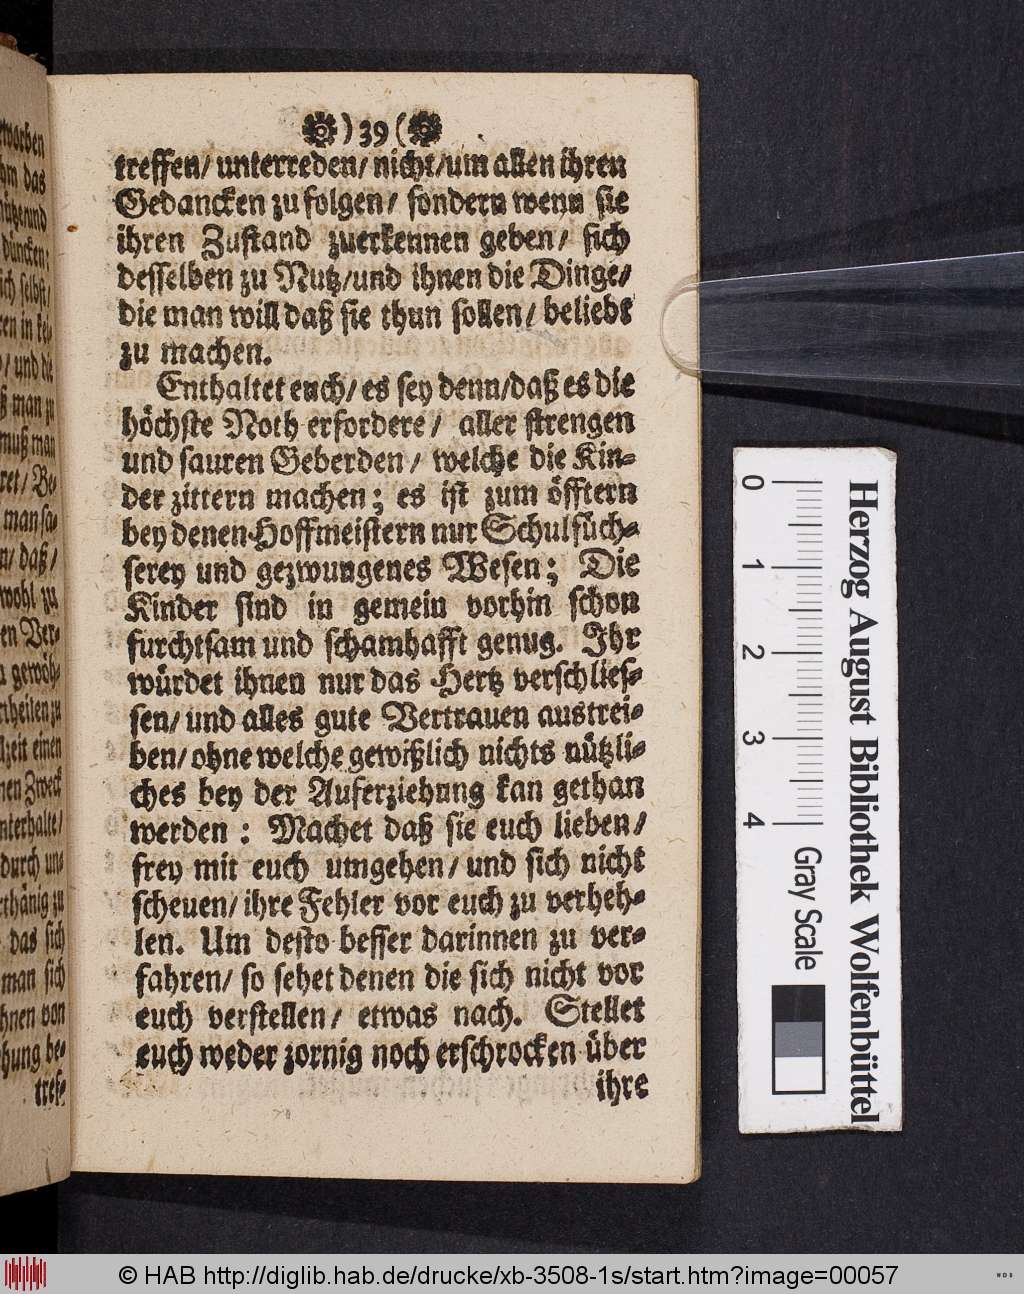 )39(
treffen/ unterreden/ nicht/um allen ihren
Gedancken zu folgen/ sondern wenn sie
ihren Zustand zuerkennen geben/ sich
desselben zu Nutz/und ihnen die Dinge/
die man will daß sie thun sollen/ beliebt
zu machen.
Enthaltet euch/ es sey denn/daß es die
höchste Noth erfordere/ aller strengen
und sauren Geberden/ welche die Kin-
der zittern machen; es ist zum öfftern
bey denen Hoffmeistern nur Schulfüch-
serey und gezwungenes Wesen; Die
Kinder sind in gemein vorhin schon
furchtsam und schamhafft genug. Ihr
würdet ihnen nur das Hertz verschlies-
sen/ und alles gute Vertrauen austrei-
ben/ ohne welche gewißlich nichts nützli-
ches bey der Auferziehung kan gethan
werden: Machet daß sie euch lieben/
frey mit euch umgehen/ und sich nicht
scheuen/ ihre Fehler vor euch zu verheh-
len. Um desto besser darinnen zu ver-
fahren/ so sehet denen die sich nicht vor
euch verstellen/ etwas nach. Stellet
euch weder zornig noch erschrocken über
ihre
tworben
das
düncken:
sich selbst/
und die
ß man zu
muß man
man sa-
daß/
wohl zu
en Ver-
gewöh-
zeit einen
Zweck
nterhalte/
durch un-
rthänig zu
das sich
man sich
hnen von
hung be-
tref-
0 1 2 3 4
Herzog August Bibliothek Wolfenbüttel
Gray Scale
© HAB http://diglib.hab.de/drucke/xb-3508-1s/start.htm?image=00057